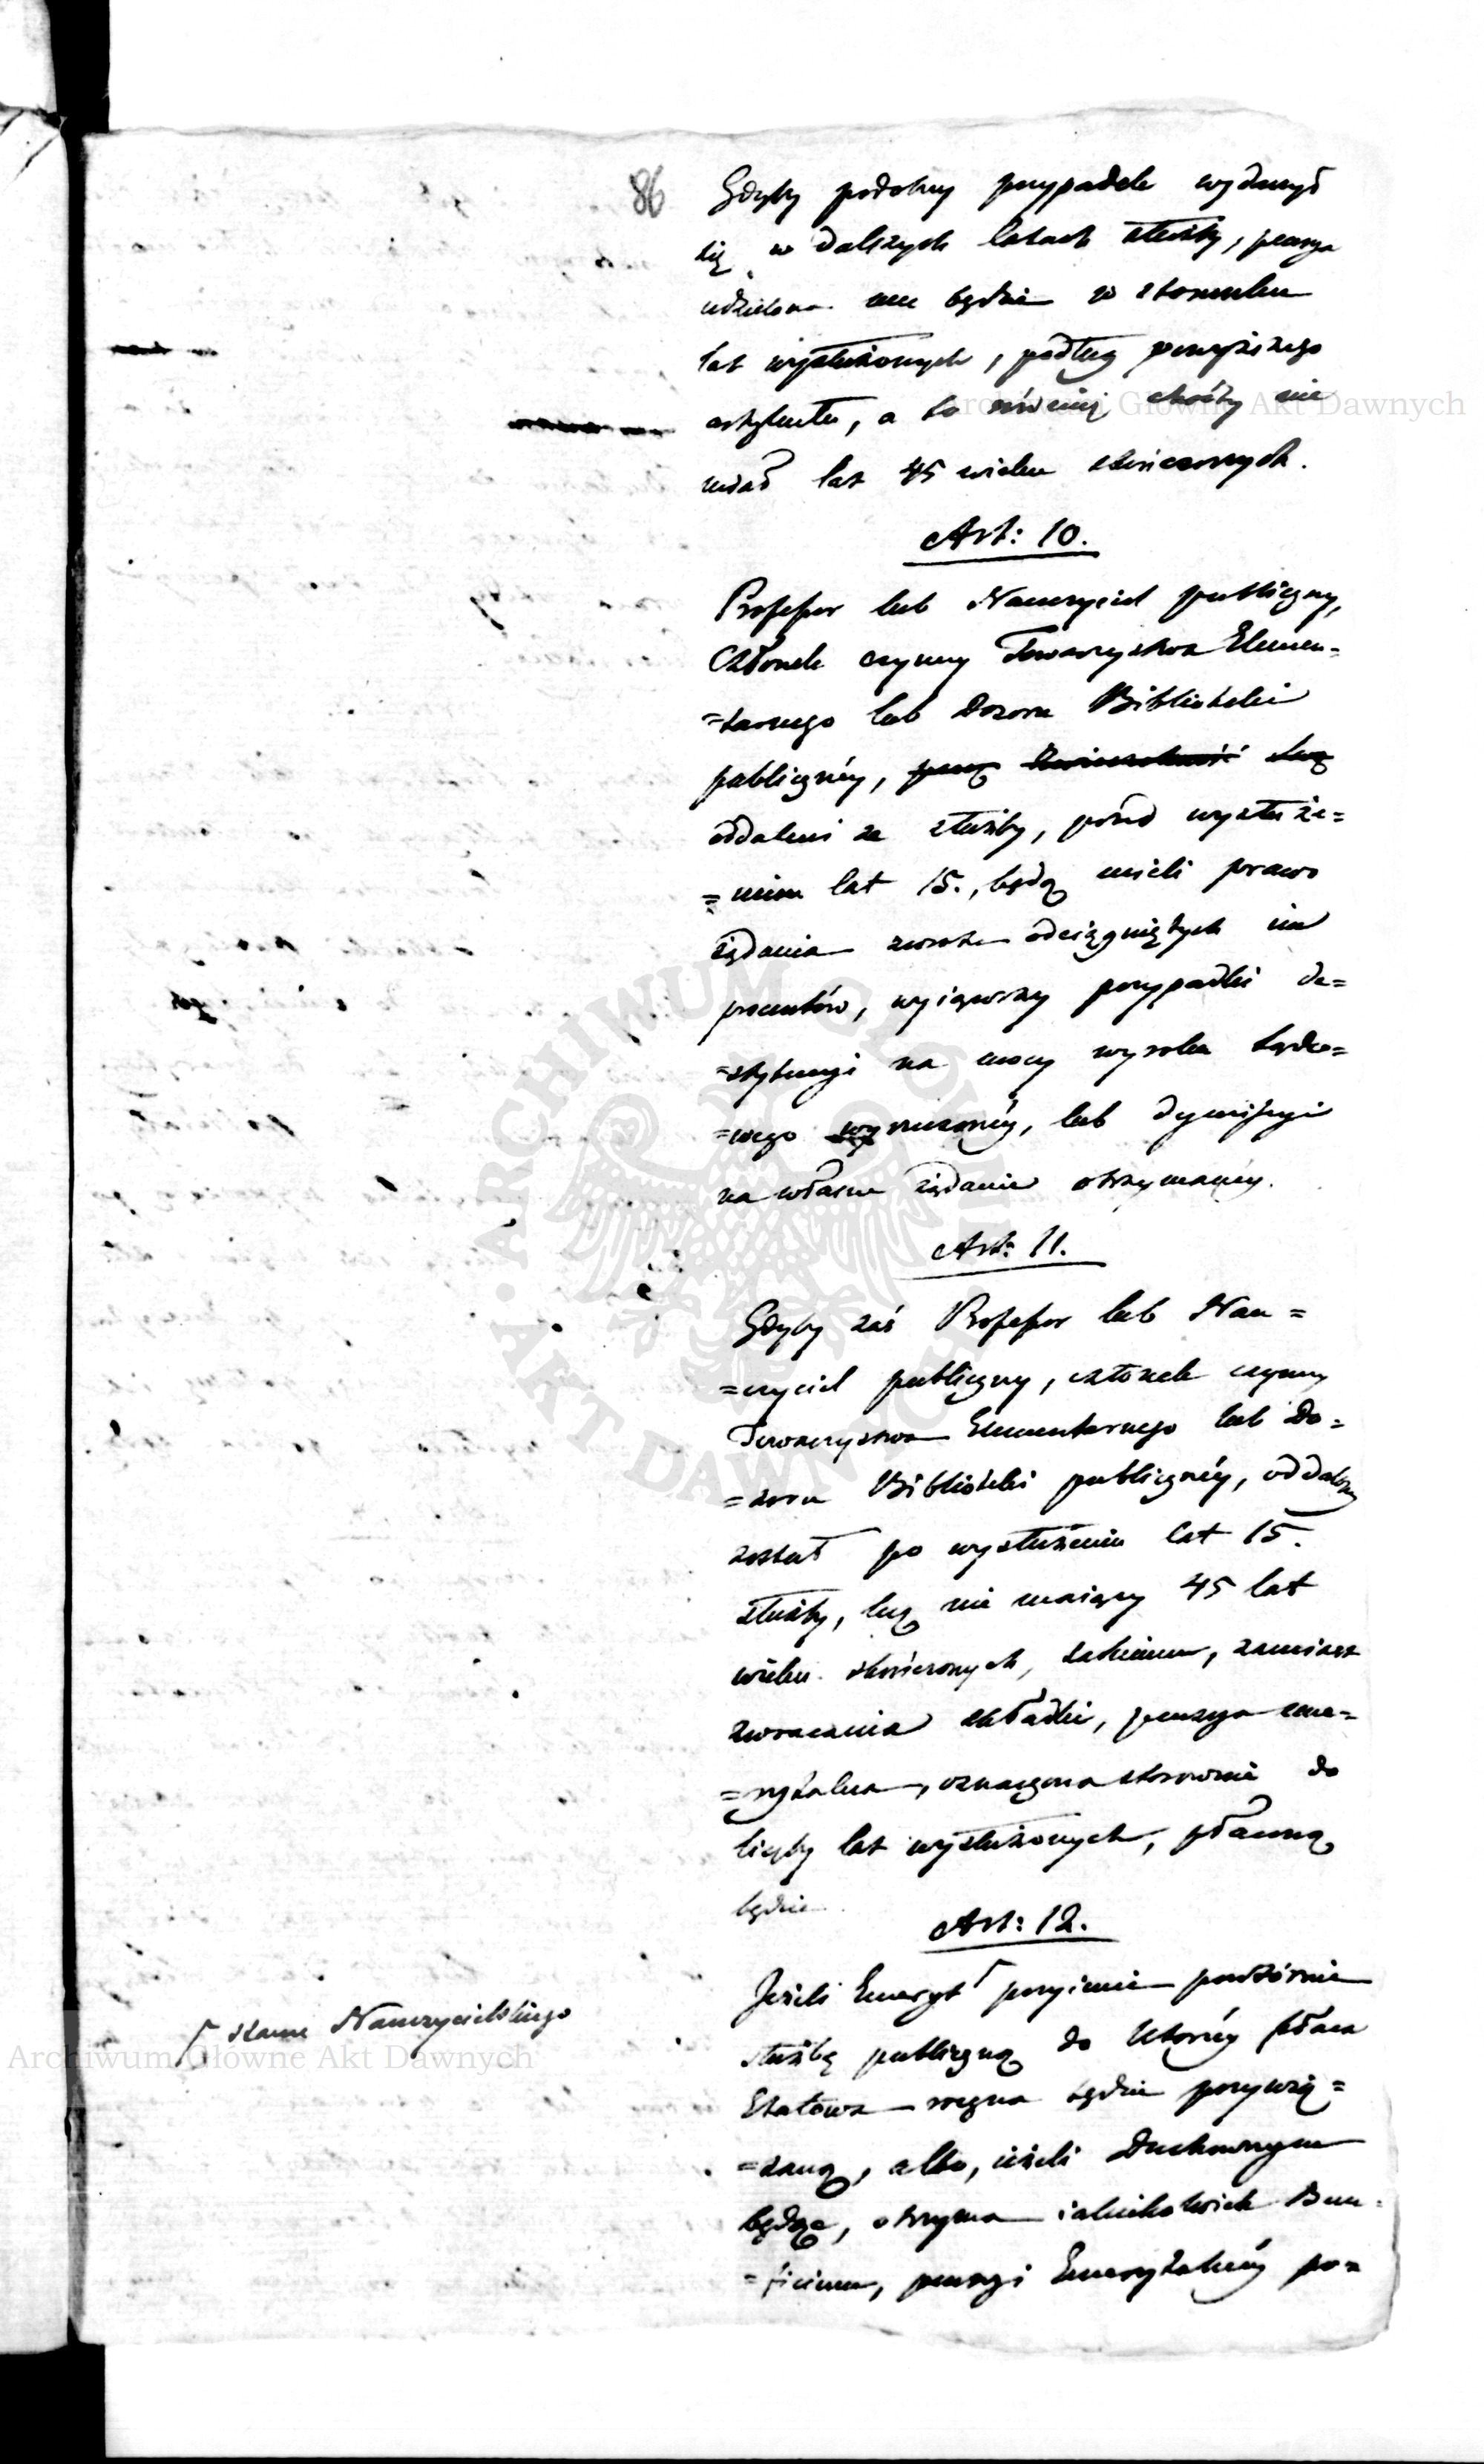 86
Gdyby podobny przypadek wydarzył
się w dalszych latach służby, pensya
udzielona mu będzie w stosunku
lat wysłużonych, podług powyższego
artykułu, a to również choćby nie
miał lat 45 wieku skończonych.
Art: 10.
Professor lub Nauczyciel publiczny,
Członek czynny Towarzystwa Elemen=
=tarnego lub Dozoru Biblioteki
publicznéy, przez Zwierzchność swą
oddaleni ze służby, przed wysłuże=
=niem lat 15., będą mieli prawo
żądania zwrotu odciągniętych im
procentów, wyiąwszy przypadki de=
=stytucyi na mocy wyroku sądo=
=wego wyrzeczonéy, lub dymissyi
na własne żądanie otrzymanéy.
Art: 11.
Gdyby zaś Professor lub Nau=
=czyciel publiczny, członek czynny
Towarzystwa Elementarnego lub Do=
=zoru Biblioteki publicznéy, oddalony
został po wysłużeniu lat 15.
służby, lecz nie maiący 45 lat
wieku skończonych, takiemu, zamiast
zwracania składki, pensya eme=
=rytalna, oznaczona stosownie do
liczby lat wysłużonych, płaconą
będzie.
Art: 12.
Jeżeli Emeryt Γ przyimie powtórnie
służbę publiczną do któréy płaca
Etatowa roczna będzie przywią=
=zaną, albo, ieżeli Duchownym
będąc, otrzyma iakiekolwiek Bene=
=ficium, pensyi Emerytalnéy po=
Γ stanu Nauczycielskiego
Archiwum Główne Akt Dawnych
Archiwum Główne Akt Dawnych
ARCHIWUM GŁÓWNE AKT DAWNYCH